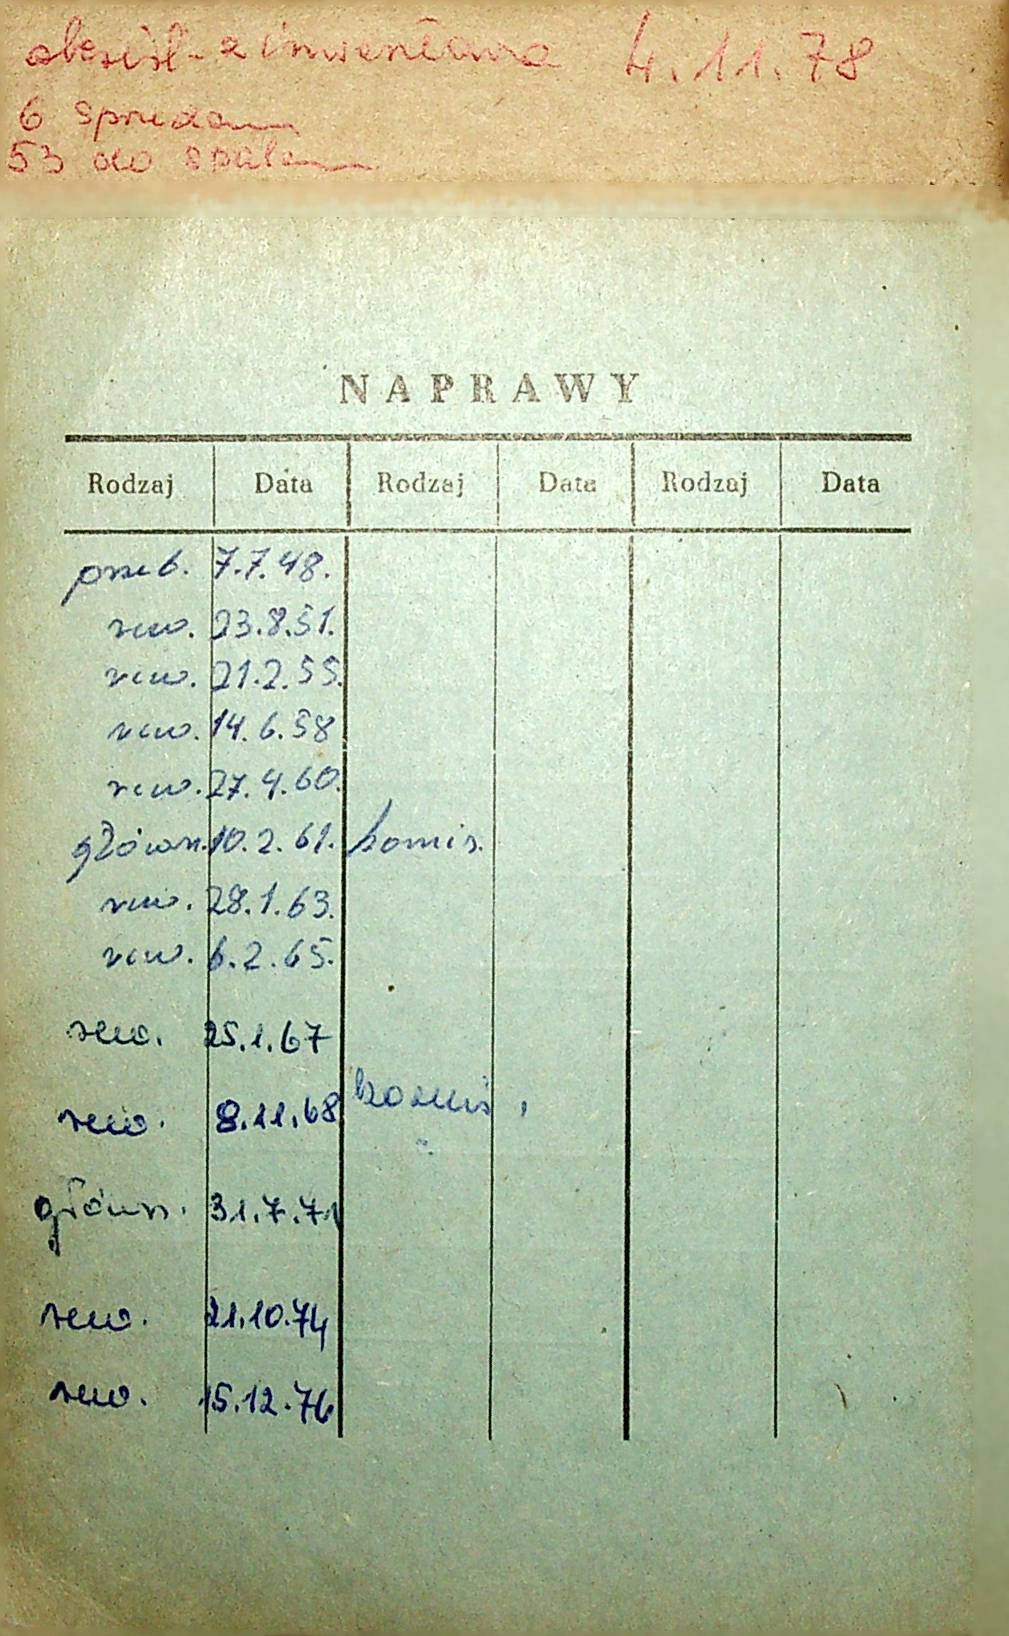 skreśl. z inwentarza 4.11.78
6 sprzedano
53 do spalen
NAPRAWY
Rodzaj Data Rodzaj Data Rodzaj Data
przeb. 7.7.48.
rew. 23.8.51.
rew. 21.2.55.
rew. 14.6.58
rew. 27.4.60.
główn. 10.2.61. komis.
rew. 28.1.63.
rew. 6.2.65.
rew. 25.1.67
rew. 8.11.68 komis.
główn. 31.7.71
rew. 21.10.74
rew. 15.12.76